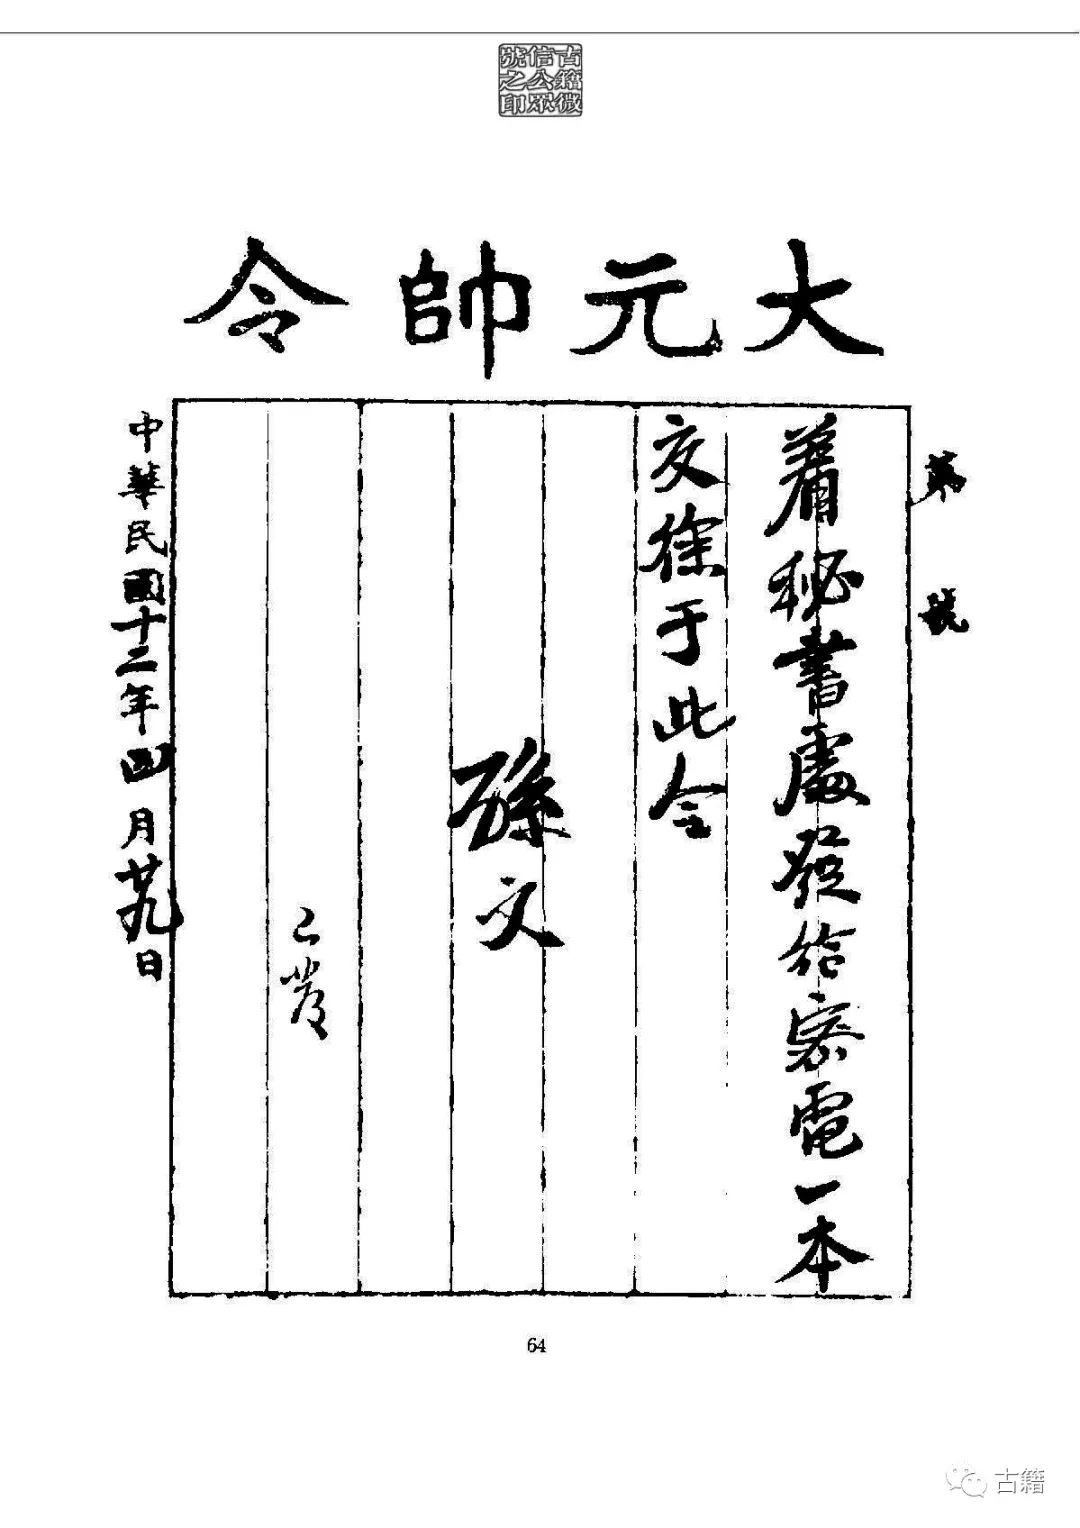 古籍微
信公眾
號之印
大元帥令
第 號
着秘書處發給密電一本
交徐于此令
孫文
已發
中華民國十二年四月廿九日
64
古籍